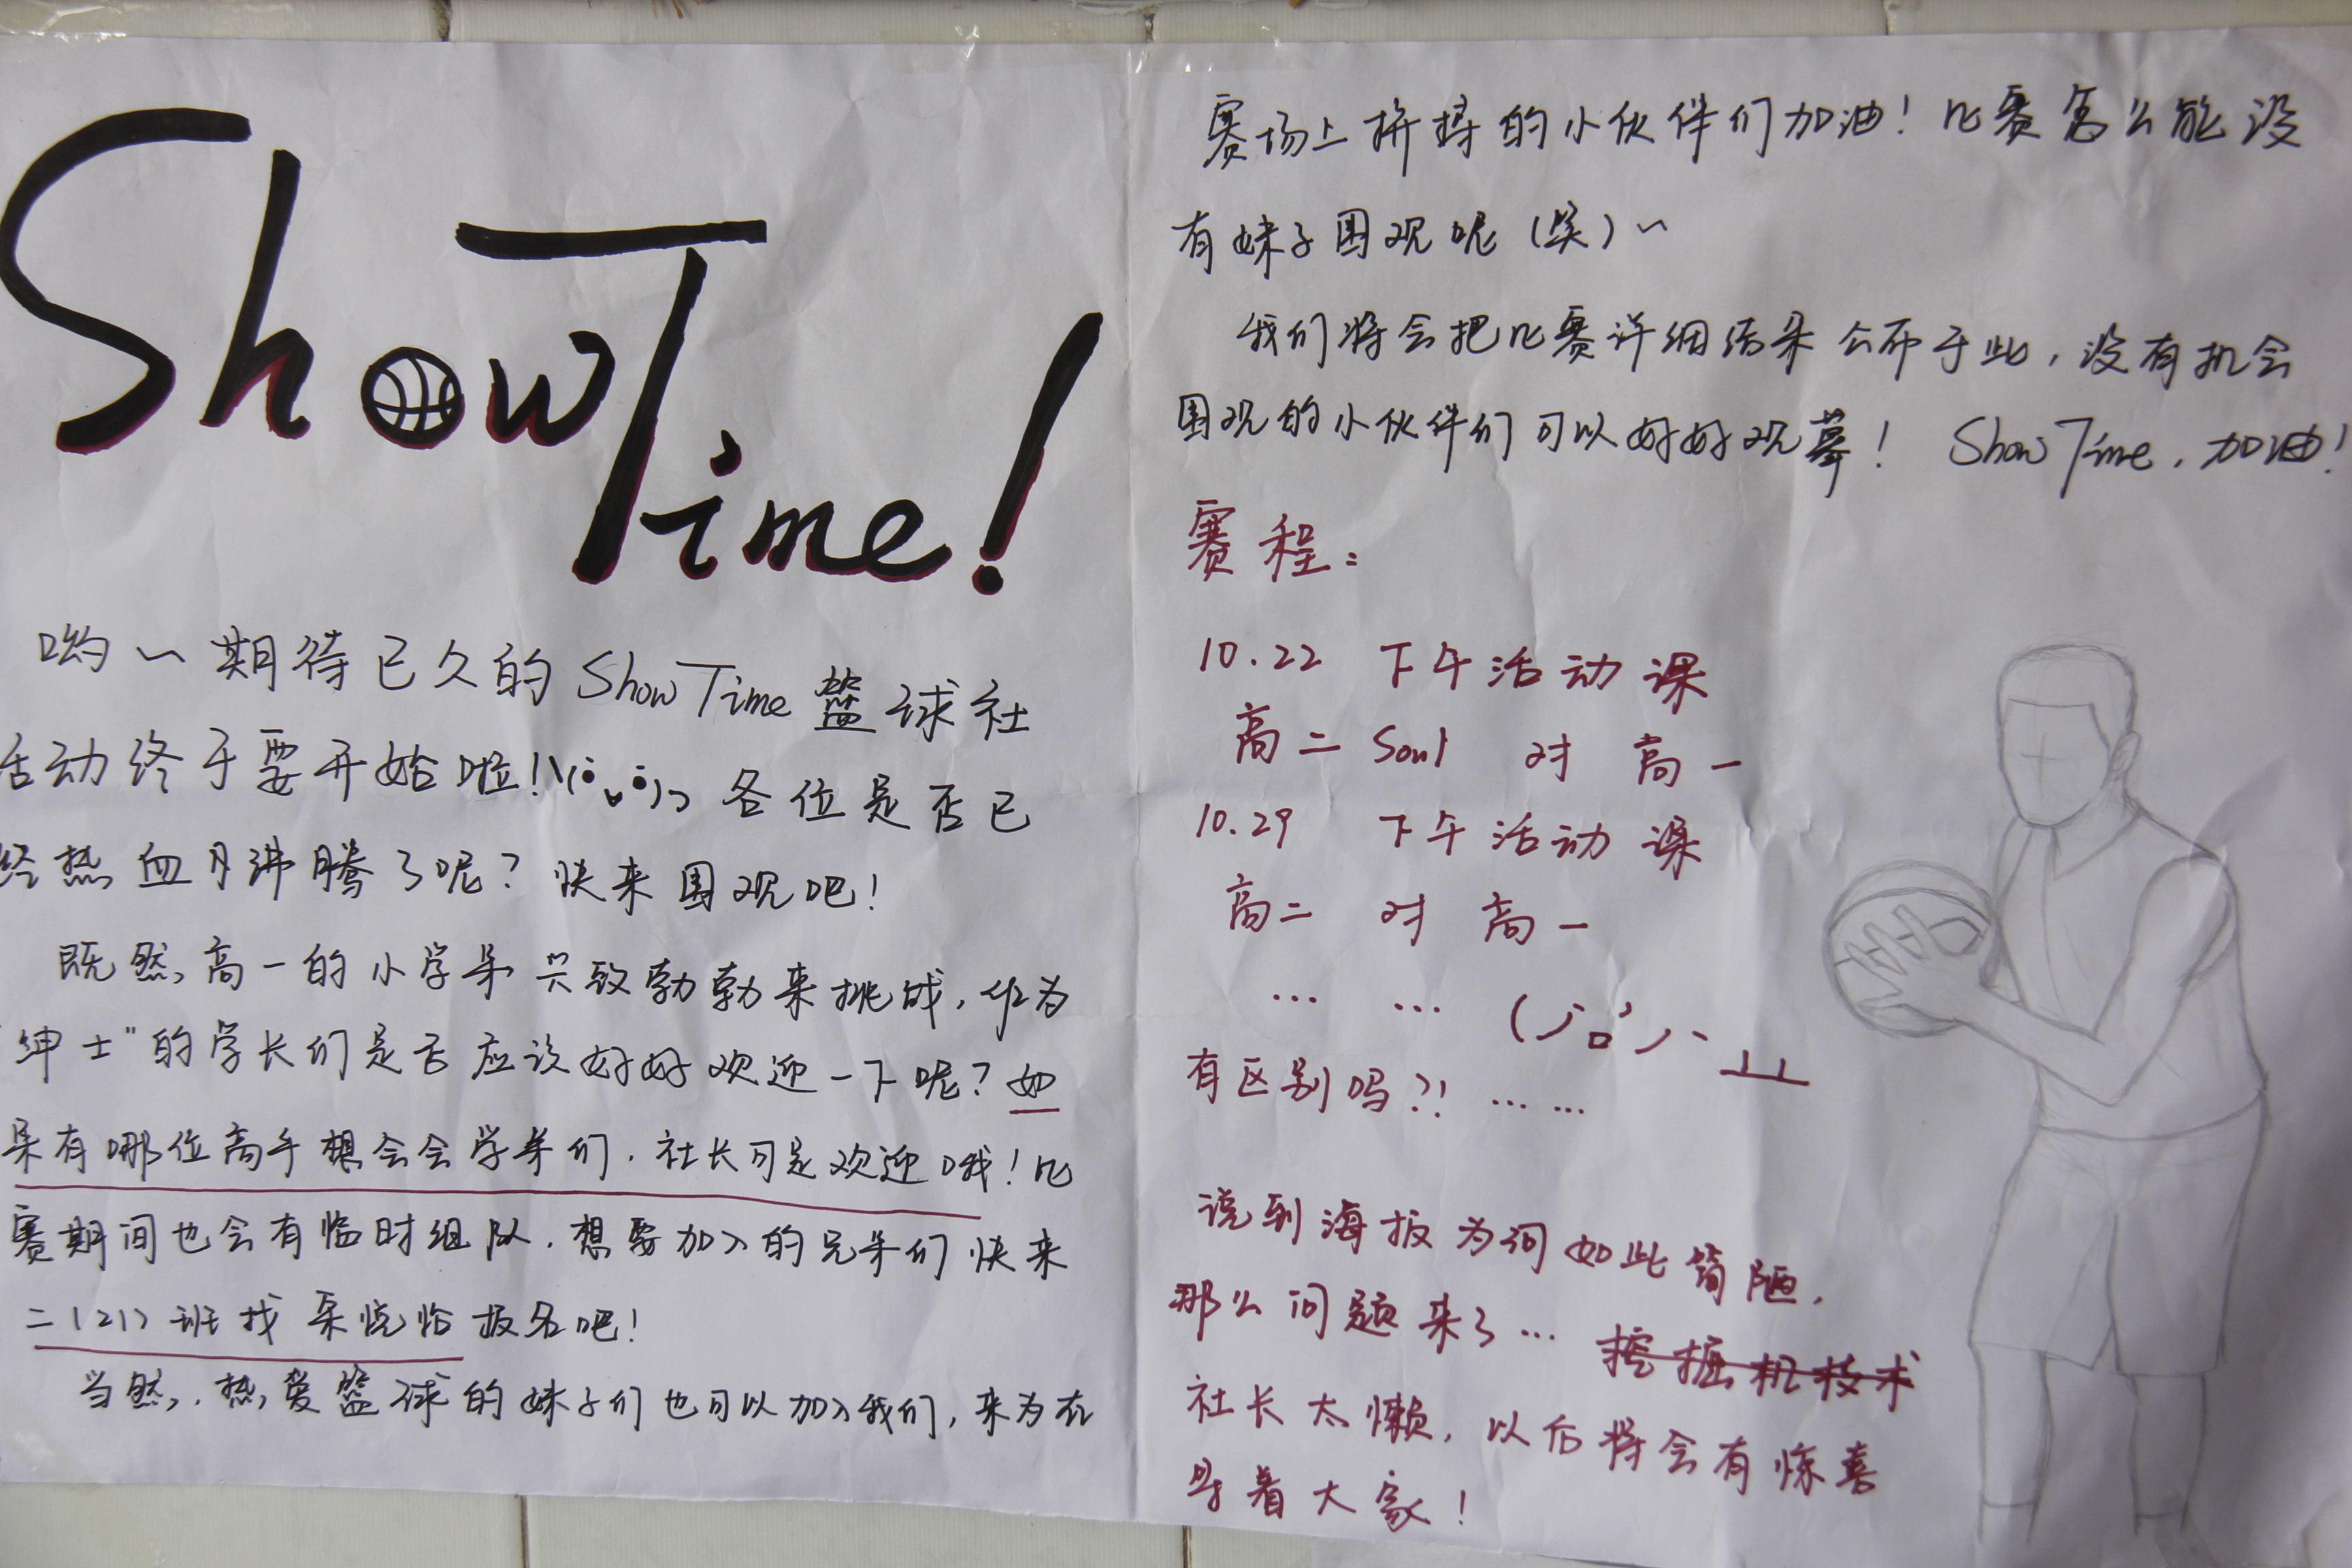 Show Time!
哟～期待已久的ShowTime篮球社
活动终于要开始啦!\(•̀ᴗ•́)ぅ各位是否已
经热血沸腾了呢?快来围观吧!
既然高一的小学弟兴致勃勃来挑战,作为
"绅士"的学长们是否应该好好欢迎一下呢?如
果有哪位高手想会会学弟们,社长可是欢迎哦!比
赛期间也会有临时组队,想要加入的兄弟们快来
二(21)班找 悦怡报名吧!
当然,热爱篮球的妹子们也可以加入我们,来为在
赛场上拼搏的小伙伴们加油!比赛怎么能没
有妹子围观呢(笑)～
我们将会把比赛详细结果公布于此,没有机会
围观的小伙伴们可以好好观摹!ShowTime,加油!
赛程:
10.22 下午活动课
高二Soul 对 高一
10.29 下午活动课
高二 对 高一
… … (ノ`ロ´)ノ︵┻┻
有区别吗?!……
说到海报为何如此简陋,
那么问题来了…挖掘机技术
社长太懒,以后将会有惊喜
等着大家!